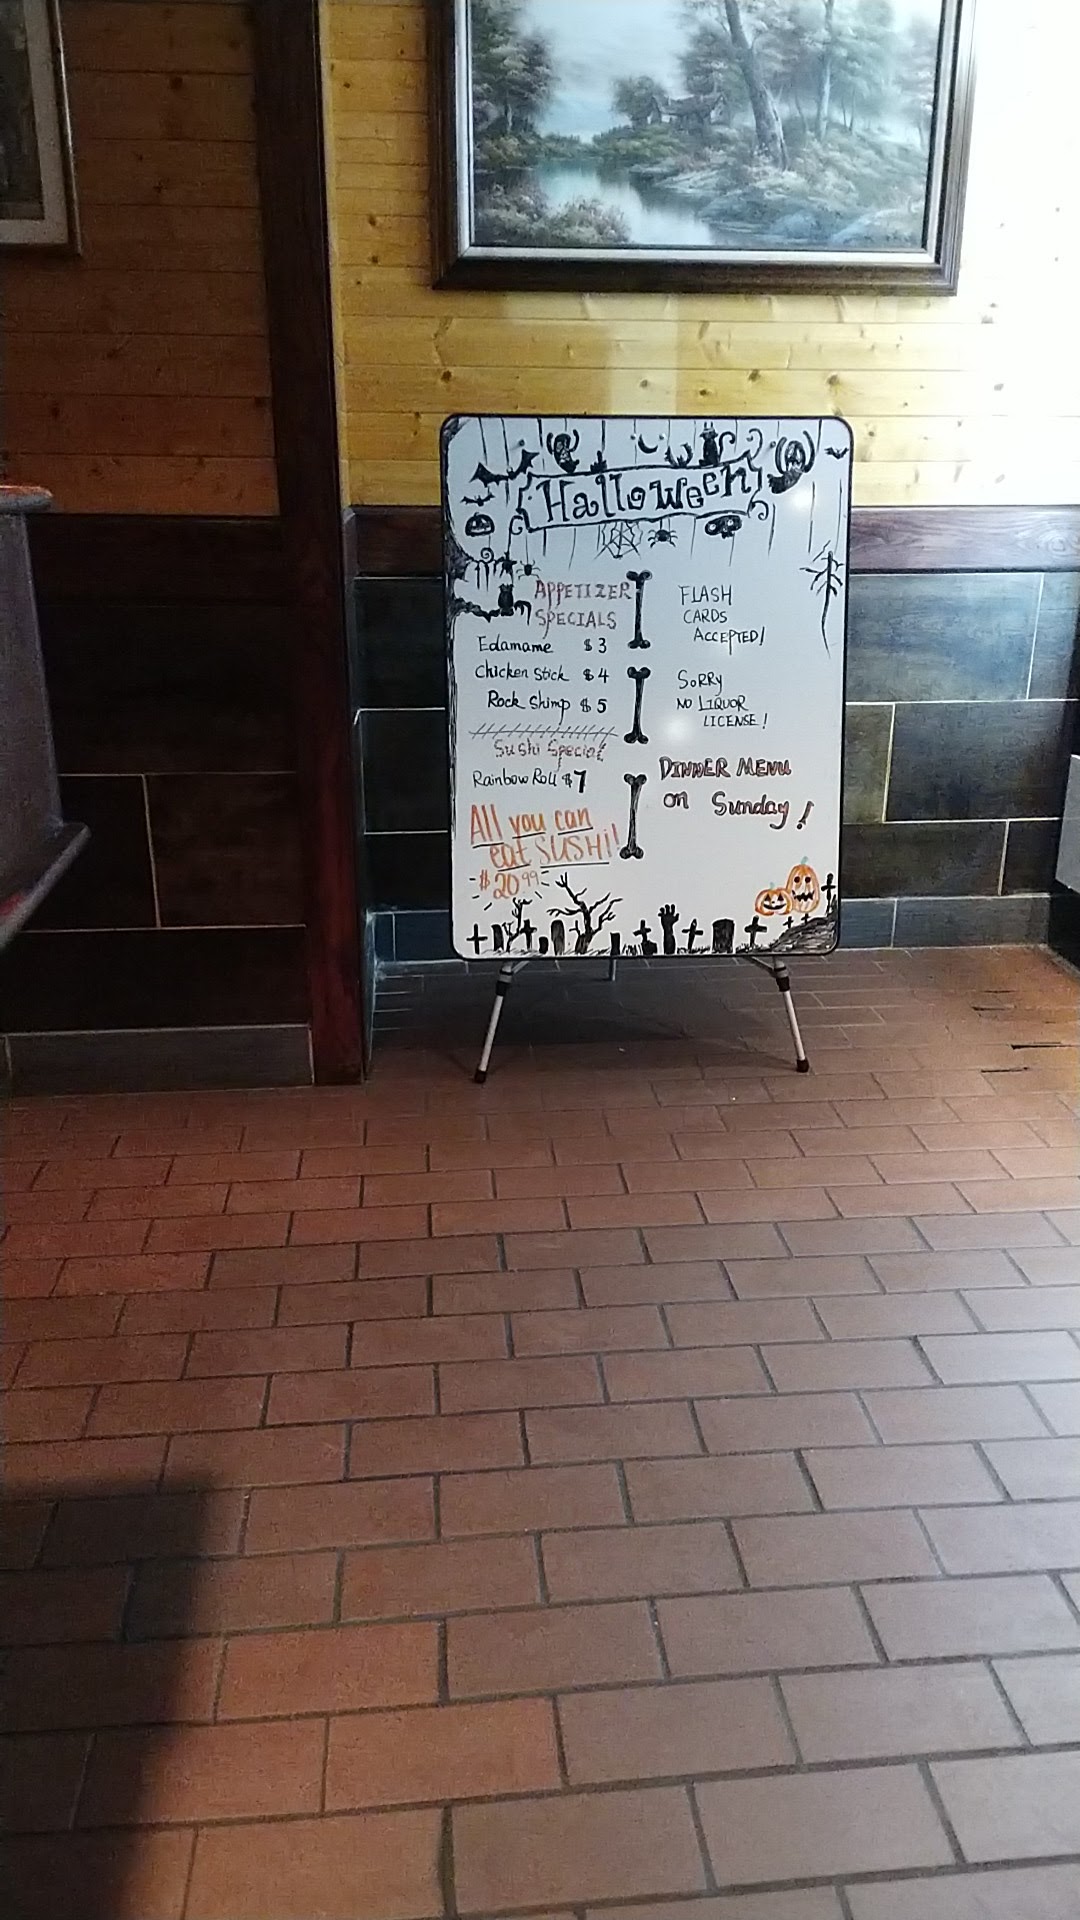 Halloween
APPETIZER
SPECIALS
Edamame $3
Chicken Stick $4
Rock Shimp $5
Sushi Special
Rainbow Roll $7
All you can
eat SUSHi!
$20.99
FLASH
CARDS
ACCEPTED!
SoRRy
NO LIQUOR
LICENSE!
DINNER MENU
on Sunday!